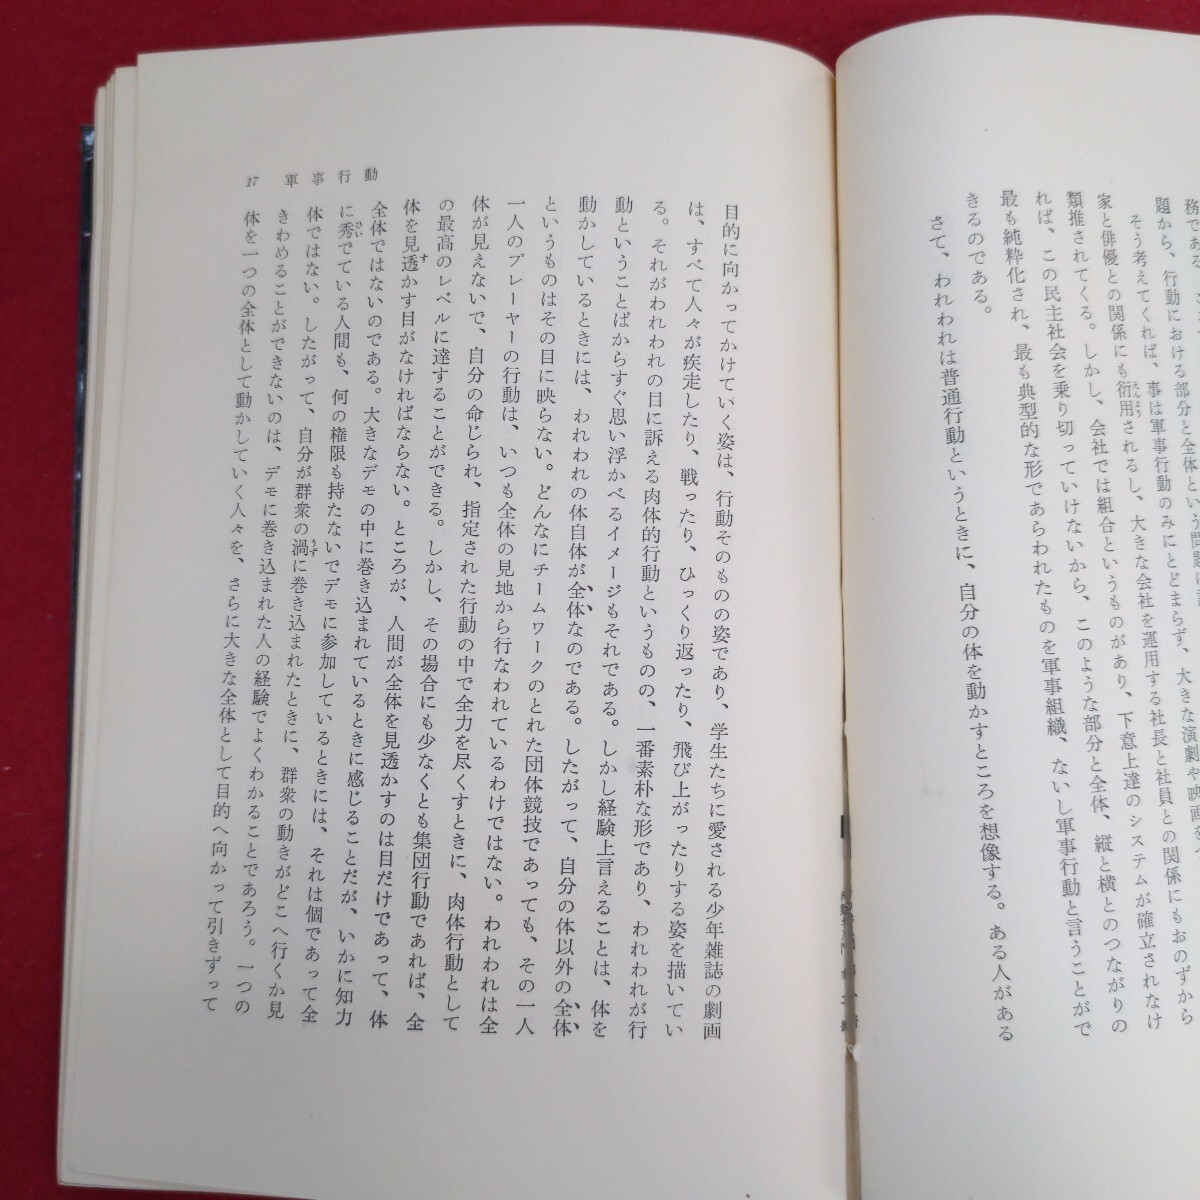 題から、行動における部分と全体という問題
そう考えてくれば、事は軍事行動のみにとどまらず、大きな演劇や映画
家と俳優との関係にも衍用されるし、大きな会社を運用する社長と社員との関係にもおのずから
類推されてくる。しかし、会社では組合というものがあり、下意上達のシステムが確立されなけ
れば、この民主社会を乗り切っていけないから、このような部分と全体、縦と横とのつながりの
最も純粋化され、最も典型的な形であらわれたものを軍事組織、ないし軍事行動と言うことがで
きるのである。
さて、われわれは普通行動というときに、自分の体を動かすところを想像する。ある人がある
目的に向かってかけていく姿は、行動そのものの姿であり、学生たちに愛される少年雑誌の劇画
は、すべて人々が疾走したり、戦ったり、ひっくり返ったり、飛び上がったりする姿を描いてい
る。それがわれわれの目に訴える肉体的行動というものの、一番素朴な形であり、われわれが行
動ということばからすぐ思い浮かべるイメージもそれである。しかし経験上言えることは、体を
動かしているときには、われわれの体自体が全体なのである。したがって、自分の体以外の全体
というものはその目に映らない。どんなにチームワークのとれた団体競技であっても、その一人
一人のプレーヤーの行動は、いつも全体の見地から行なわれているわけではない。われわれは全
体が見えないで、自分の命じられ、指定された行動の中で全力を尽くすときに、肉体行動として
の最高のレベルに達することができる。しかし、その場合にも少なくとも集団行動であれば、全
体を見透かす目がなければならない。ところが、人間が全体を見透かすのは目だけであって、体
全体ではないのである。大きなデモの中に巻き込まれているときに感じることだが、いかに知力
に秀でている人間も、何の権限も持たないでデモに参加しているときには、それは個であって全
体ではない。したがって、自分が群衆の渦に巻き込まれたときに、群衆の動きがどこへ行くか見
きわめることができないのは、デモに巻き込まれた人の経験でよくわかることであろう。一つの
体を一つの全体として動かしていく人々を、さらに大きな全体として目的へ向かって引きずって
17 軍事行動